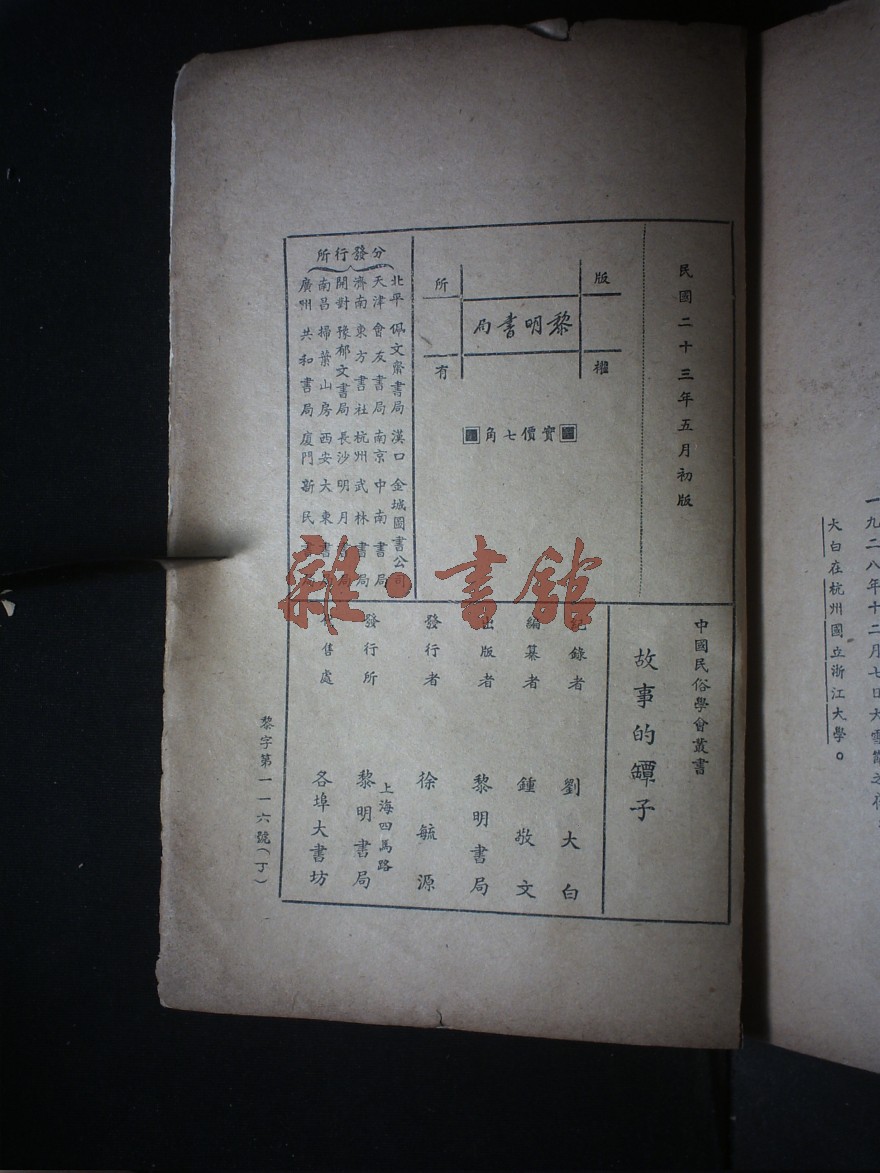 一九二八年十二月七日大雪節之
大白在杭州國立浙江大學。
民國二十三年五月初版
版權所有
黎明書局
實價七角
分發行所
北平 佩文齋書局 漢口 金城圖書公司
天津 會友書局 南京 中南書局
濟南 東方書社 杭州 武林書局
開封 豫郁文書局 長沙 明月書局
南昌 掃葉山房 西安 大東書
廣州 共和書局 廈門 新民書
中國民俗學會叢書
故事的罈子
紀錄者 劉大白
編纂者 鍾敬文
出版者 黎明書局
發行者 徐毓源
發行所 上海四馬路
黎明書局
售處 各埠大書坊
黎字第一一六號(丁)
雜·書館